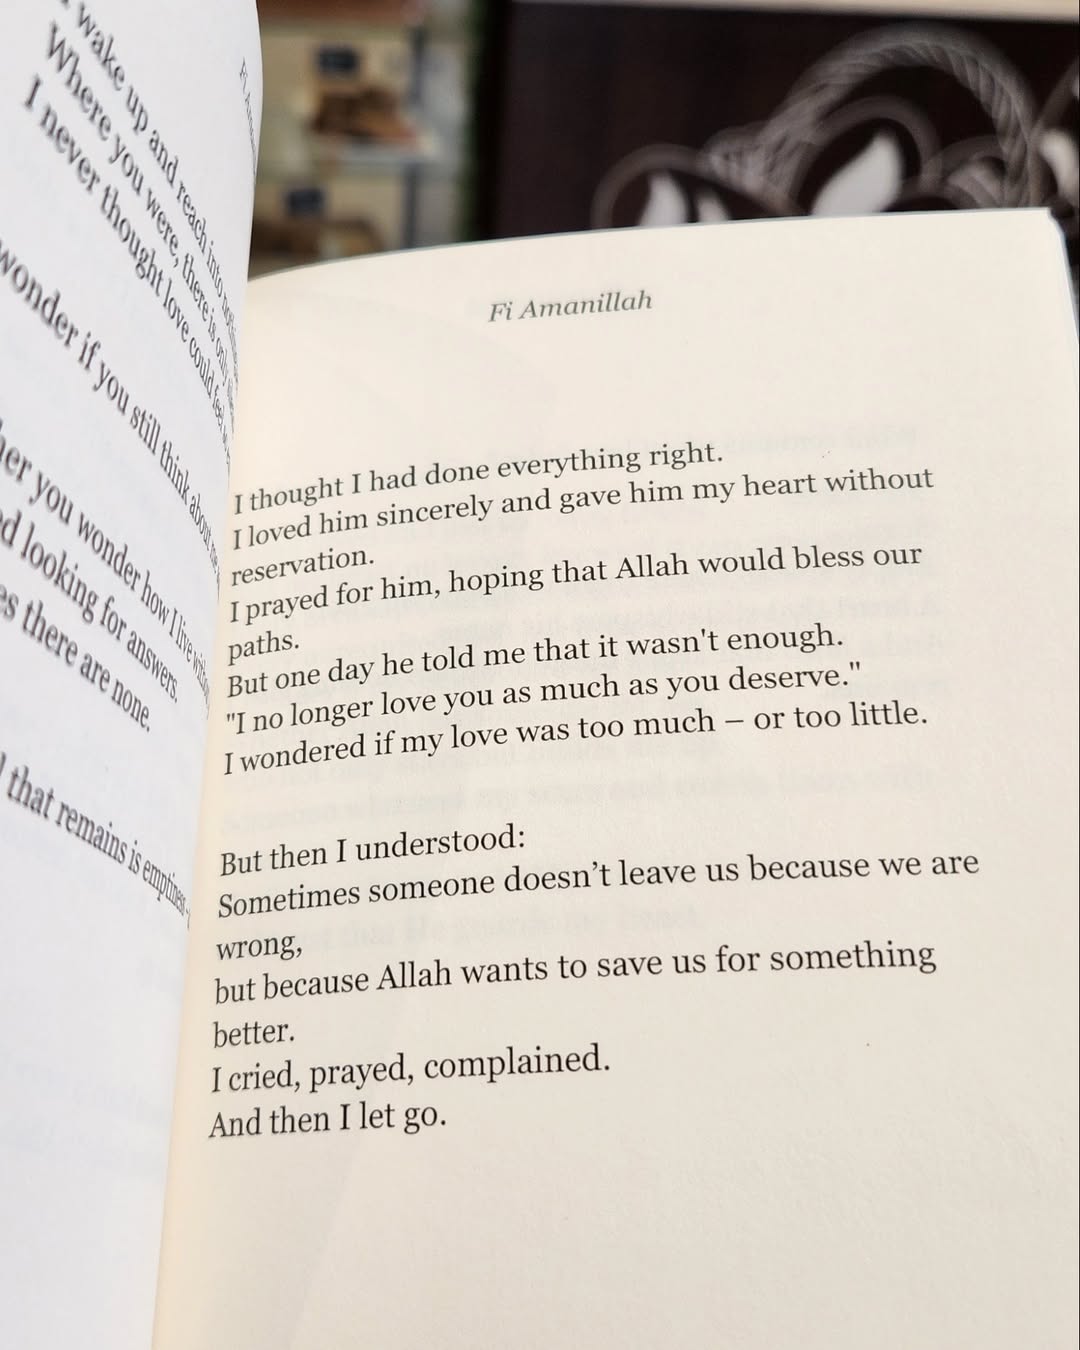 wake up and reach into
Where you were, there is only
I never thought love could feel
wonder if you still think about
you wonder how I live
looking for answers.
there are none.
that remains is emptiness
Fi
Fi Amanillah
I thought I had done everything right.
I loved him sincerely and gave him my heart without
reservation.
I prayed for him, hoping that Allah would bless our
paths.
But one day he told me that it wasn't enough.
"I no longer love you as much as you deserve."
I wondered if my love was too much – or too little.
But then I understood:
Sometimes someone doesn’t leave us because we are
wrong,
but because Allah wants to save us for something
better.
I cried, prayed, complained.
And then I let go.